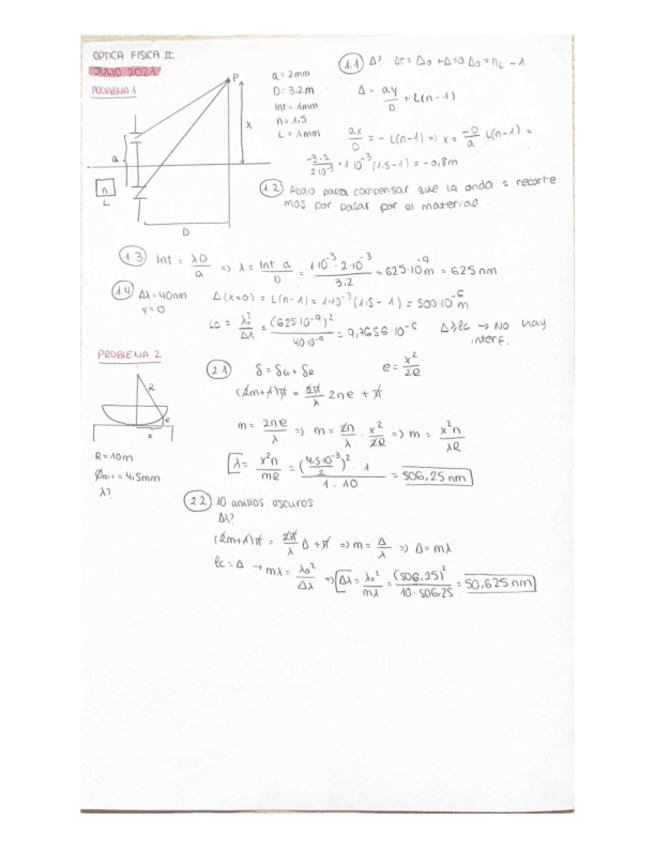 OPTICA FISICA II
JUNIO 2021
PROBLEMA 1
P
x
a
n
L
D
a = 2mm
D = 3.2m
Int = 1mm
n = 1,5
L = 1mm
1.1 Δ? ΔT = Δ0 + Δ = 0 Δ0 = nL - 1
Δ = ay/D + L(n-1)
ax/D = - L(n-1) => x = -D/a L(n-1) =
-3·2/2·10⁻³ · 1·10⁻³ (1.5-1) = -0,8m
1.2 Abajo para compensar que la onda 2 recorre
mas por pasar por el material
1.3 Int = λD/a => λ = Int a/D = 1·10⁻³·2·10⁻³/3,2 = 625·10⁻⁹m = 625 nm
1.4 Δλ = 40nm Δ(x=0) = L(n-1) = 1·10⁻³(1,5-1) = 500·10⁻⁶m
y = 0
lc = λ0²/Δλ = (625·10⁻⁹)²/40·10⁻⁹ = 9,7656·10⁻⁶ Δ>lc → No hay
interf.
PROBLEMA 2
R
e
x
R = 10m
λ?
2.1 δ = δG + δR e = x²/2R
(2m+1)π = 2π/λ 2ne + π
m = 2ne/λ => m = 2n/λ · x²/2R => m = x²n/λR
λ = x²n/mR = (4,5·10⁻³/2)² · 1/1·10 = 506,25 nm
2.2 10 anillos oscuros
Δλ?
(2m+1)π = 2π/λ Δ + π => m = Δ/λ => Δ = mλ
lc = Δ → mλ = λ0²/Δλ => Δλ = λ0²/mλ = (506,25)²/10·506,25 = 50,625 nm